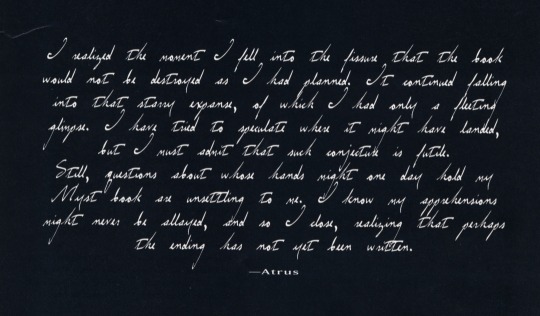 I realized the moment I fell into the fissure that the book
would not be destroyed as I had planned. It continued falling
into that starry expanse, of which I had only a fleeting
glimpse. I have tried to speculate where it might have landed,
but I must admit that such conjecture is futile.
Still, questions about whose hands might one day hold my
Myst book are unsettling to me. I know my apprehensions
might never be allayed, and so I close, realizing that perhaps
the ending has not yet been written.
—Atrus